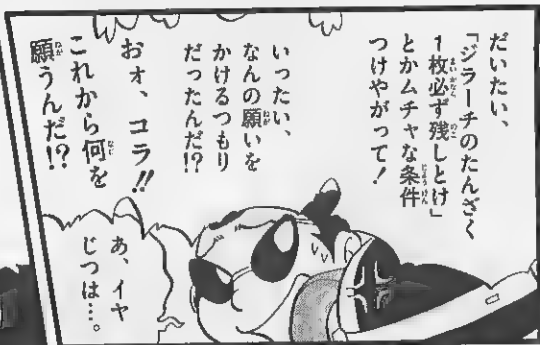 だいたい、
「ジラーチのたんざく
1枚必ず残しとけ」
とかムチャな条件
つけやがって!
いったい、
なんの願いを
かけるつもり
だったんだ!?
おォ、コラ!!
これから何を
願うんだ!?
あ、イヤ
じつは…。